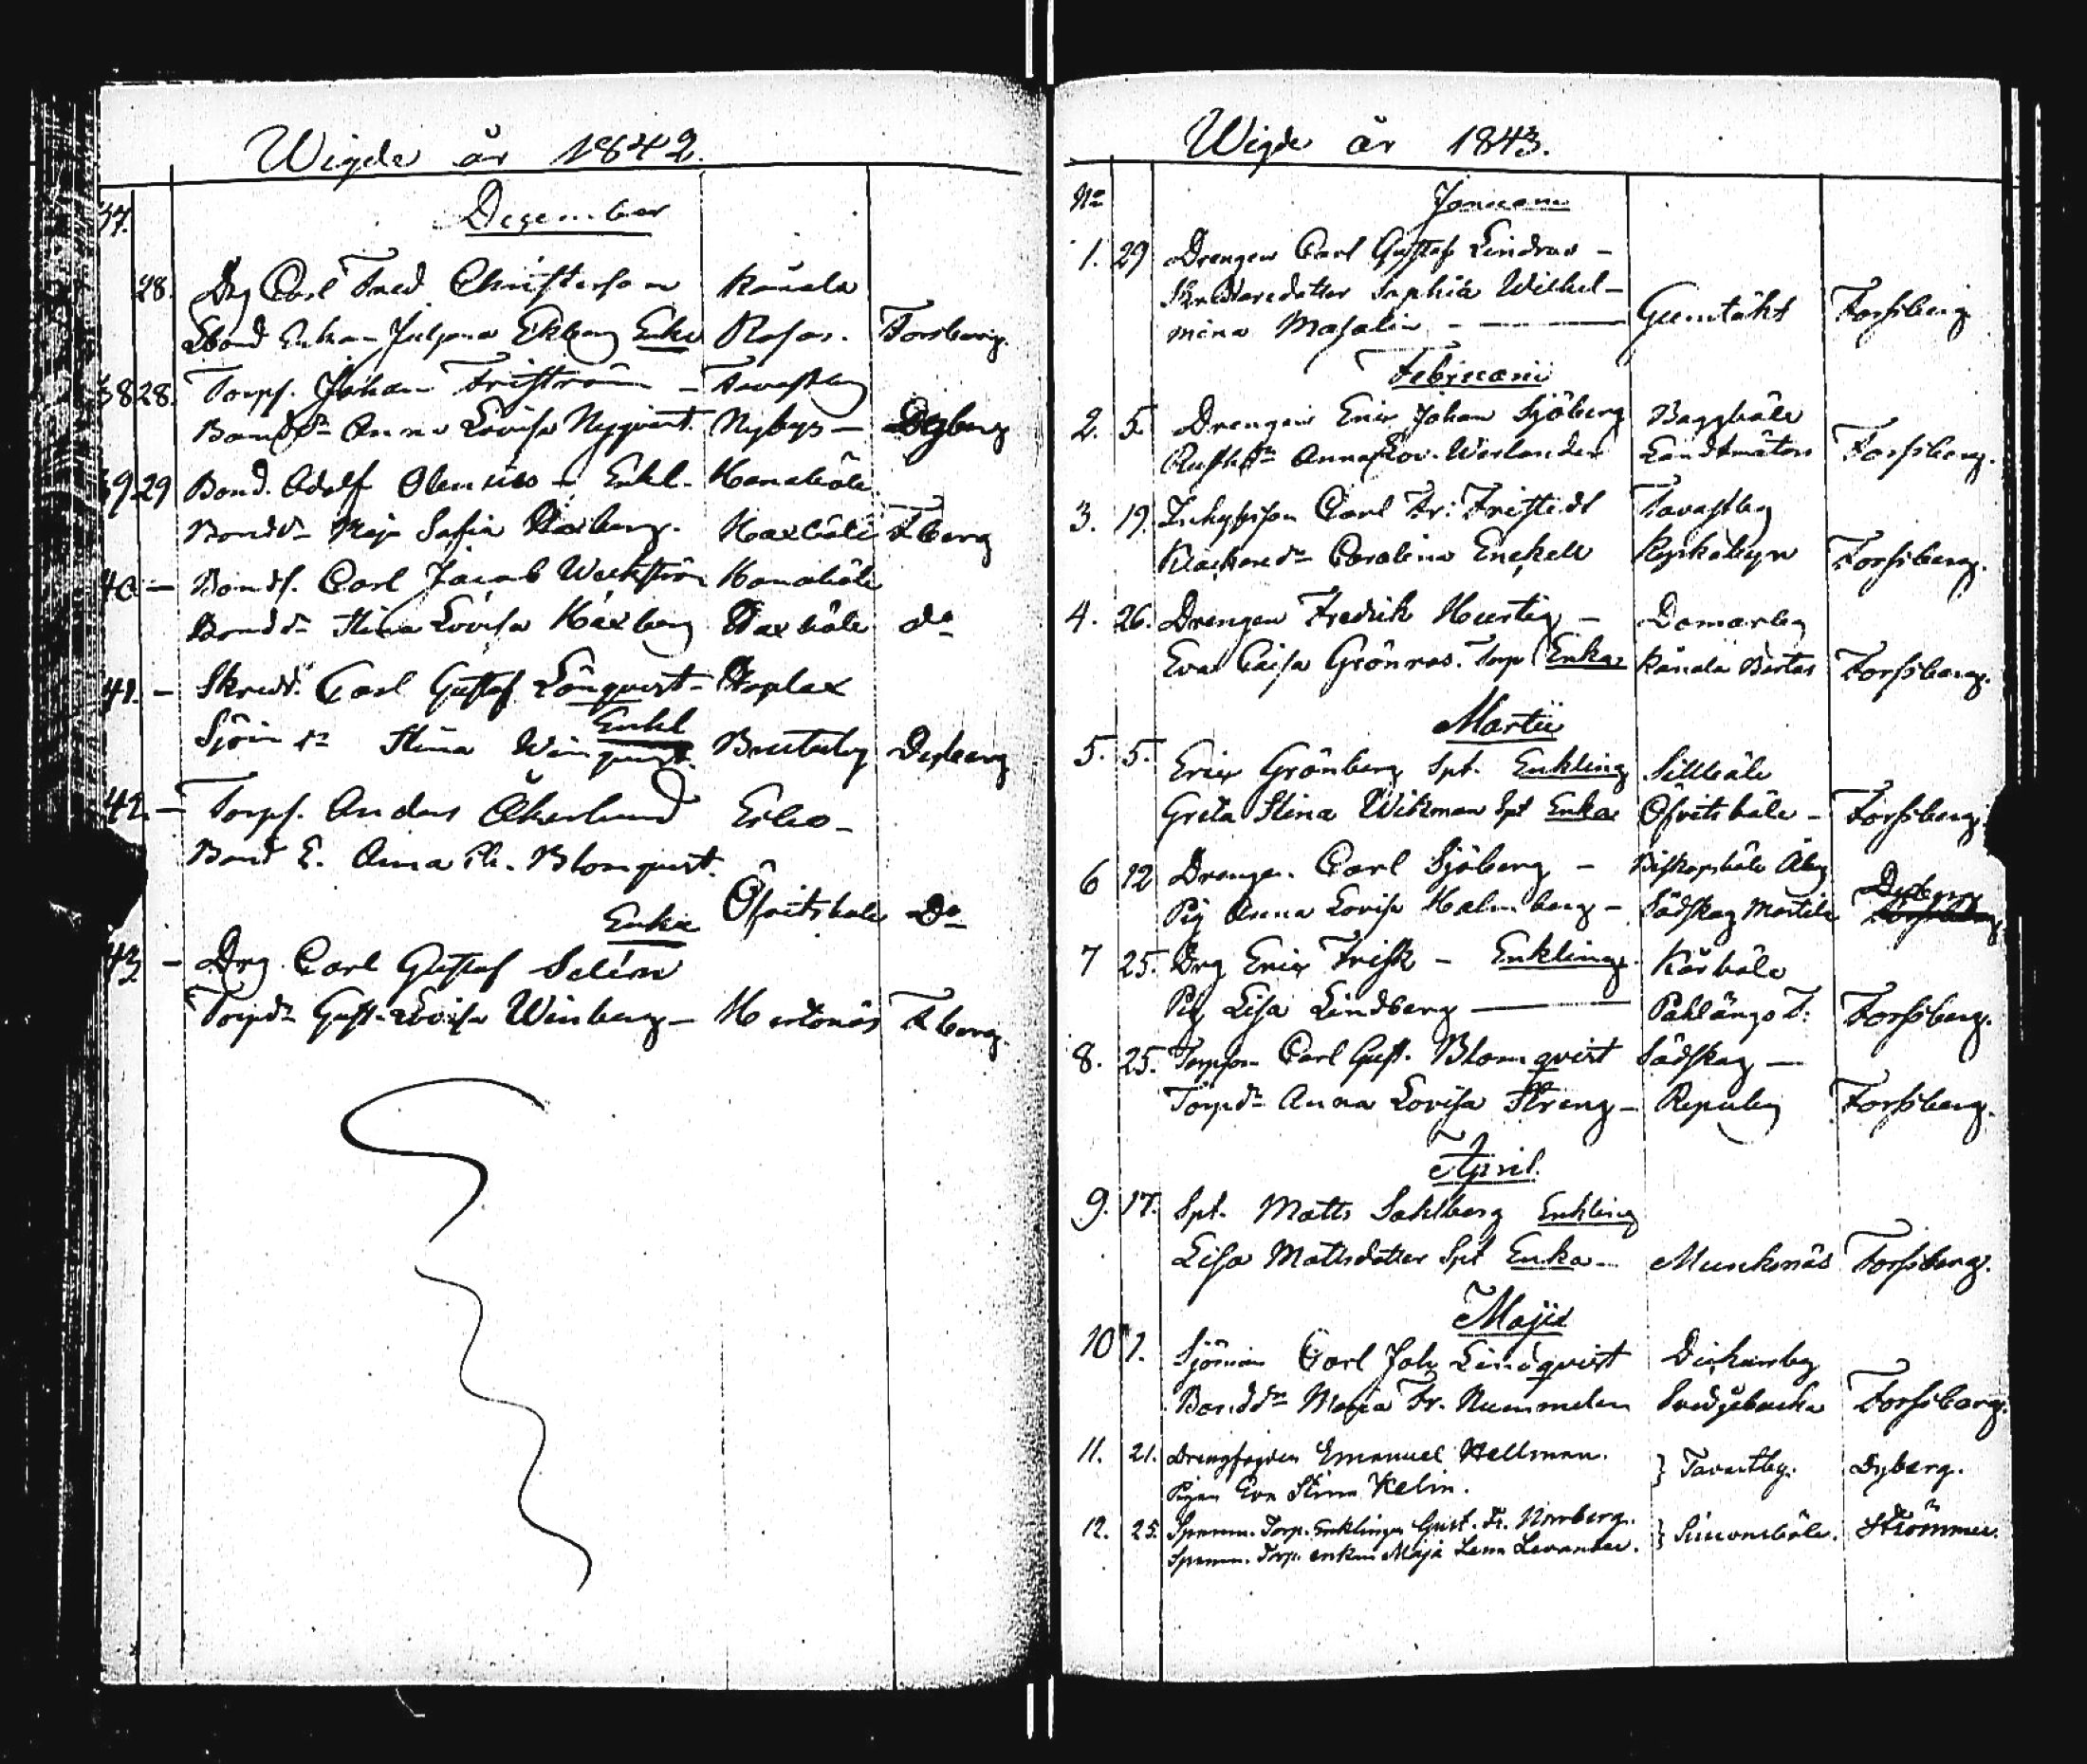 Wigde år 1842.
37. December
28. Drg Carl Fred Christersson Kånala
Bond Enkan Juljana Ekberg Enka Rosas. Forsberg.
38 28. Torpf. Johan Friström – Tavastby
Bondd:r Anna Lovisa Nyqvist. Nybys – Dyberg
39 29 Bond. Adolf Olenius – Enkl. Konaböle
Bondd:r Maja Safia Haxberg. Haxböle Fberg
40 – Bondf. Carl Jacob Weckström Konaböle
Bondd:r Stina Lovisa Haxberg Haxböle d:o
41. – Skrædd. Carl Gustaf Lönqvist – Hoplax
Enkl
Sjöm d:r Stina Winqvist. Bruteby Dyberg
42. – Torpf. Anders Åkerlund Erbo –
Bond E. Anna Ch. Blomqvist.
Enka Öfvitsböle D:o
43 – Drg. Carl Gustaf Selén
Torpd:r Gust. Lovisa Winberg – Hertonäs Fberg.
Wigde år 1843.
N:o Januari
1. 29 Drengen Carl Gustaf Lindros –
Skräddaredotter Sophia Wilhel–
mina Masalin – Gumtäkt Forssberg
Februari
2. 5. Drengen Eric Johan Sjöberg Baggböle
Rusth.d:r Anna Lov. Werlander Landtmäters Forssberg.
3. 19. Inhysesson Carl Fr: Fristedt Tavastby
Klockared:r Carolina Enckell Kyrkobyn Forssberg.
4. 26. Drengen Fredrik Hurtig – Domarby
Eva Caisa Grönroos. Torp Enka Kånala Bertas Forssberg.
Martii
5. 5. Eric Grönberg Spt. Enkling Sillböle
Greta Stina Wikman Spt Enka Öfvitsböle – Forssberg.
6 12 Drengen Carl Sjöberg – Biskopsböle Åby
Pig Anna Lovisa Malmberg – Sådskog Mårtils Dyberg
7 25. Drg Eric Frisk – Enkling. Kårböle
Pig Lisa Lindberg — Pahlängs T: Forssberg.
8. 25. Torpson Carl Gust. Blomqvist Sådskog —
Torpd:r Anna Lovisa Streng – Repuby Forssberg.
April.
9. 17. Spt. Matts Sahlberg Enkling
Lisa Mattsdotter Spt Enka – Munksnäs Forssberg.
Maji
10 1. Sjöman Carl Joh Lindqvist Dickursby
Bondd:r Maria Fr. Nummelin Svedjebacka Forssberg.
11. 21. Drengfogden Emanuel Hellman. } Tavastby. Dyberg.
Pigan Eva Stina Kelin.
12. 25. Spanm. Torp. Enklingen Gust. Fr. Norrberg. } Simonsböle. Strömmer.
Spanm. Torp. enkan Maja Lena Levander.